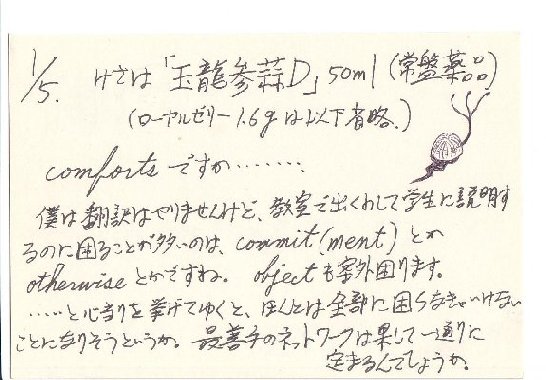 1/5. けさは「玉龍参蒜D」50ml(常盤薬品)
(ローヤルゼリー1.6gは以下省略.)
comfortsですか………
僕は翻訳はやりませんけど、教室で出くわして学生に説明す
るのに困ることが多いのは、commit(ment)とか
otherwiseとかですね。objectも案外困ります。
……と心当りを挙げてゆくと、ほんとは全部に困らなきゃいけない
ことになりそうというか。最善手のネットワークは果して一通りに
定まるんでしょうか。